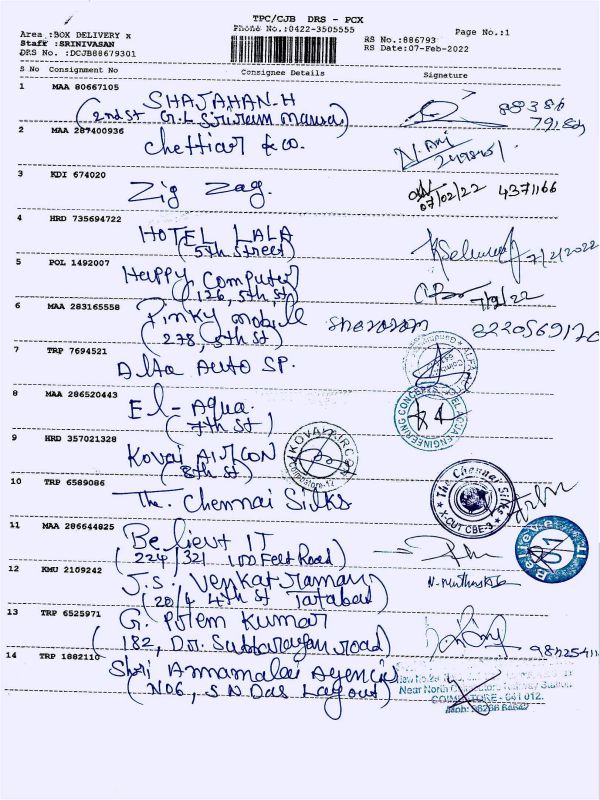 TPC/CJB DRS - PCX
Phone No.:0422-3505555
Page No.:1
Area :BOX DELIVERY x
Staff :SRINIVASAN
DRS No. :DCJB88679301
RS No.:886793
RS Date:07-Feb-2022
S No Consignment No Consignee Details Signature
1 MAA 80667105
SHAJAHAN-H
(2nd st G.L Sivuram
2 MAA 287400936
Chettiar & co.
3 KDI 674020
Zig Zag.
07/02/22 4371166
4 HRD 735694722
HOTEL LALA
(5th Street)
7/2/2022
5 POL 1492007
Happy Computer
(126, 5th st)
7/2/22
6 MAA 283165558
Pinky mobile
(278, 5th st)
7 TRP 7694521
Alta Auto SP.
8 MAA 286520443
El-Aqua.
(7th st)
ENGINEERING
9 HRD 357021328
Kovai AIRCON
(8th st)
KOVAI AIRCON
10 TRP 6589086
The. Chennai Silks
The Chennai Silks
CUT CBE-3
11 MAA 286644825
Believe IT
(224/321 100 Feet Road)
Believe IT
12 KMU 2109242
J.S. Venkatraman
(20/4 4th st Tatabad)
13 TRP 6525971
G. Potem Kumar
(182, Dr. Subbarayan road)
14 TRP 1882110
Shri Annamalai Agencies
(No6, S.N Das Layout)
Near North
COIMBATORE - 641 012.